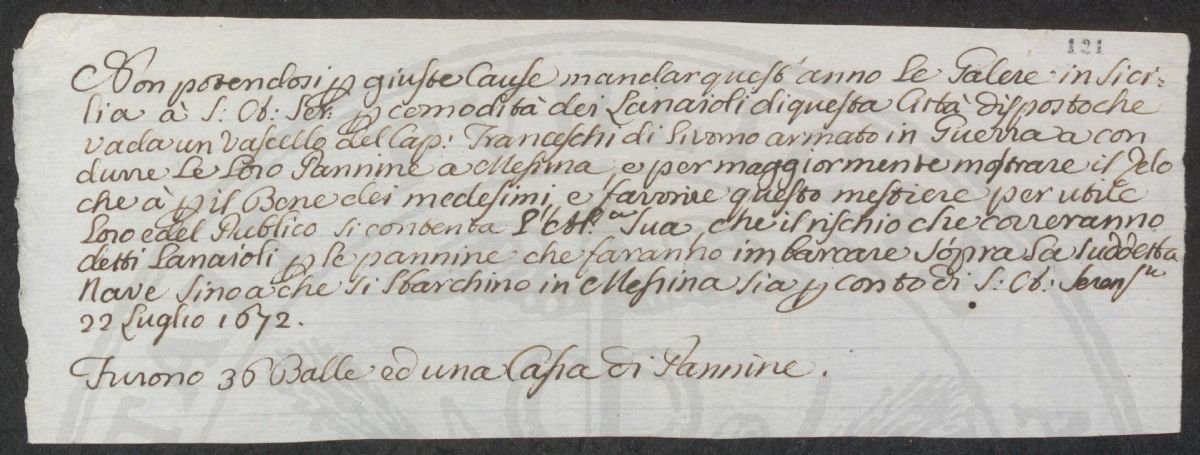 121
Non potendosi ꝑ giuste Cause mandar quest'anno Le Galere in Sici-
lia à S: A: Ser: ꝑ comodità dei Lanaioli di questa Città disposto che
vada un Vascello del Cap: Franceschi di Livorno armato in Guerra a con
durre Le Loro Pannine a Messina, e per maggiormente mostrare il Zelo
che à ꝑ il Bene dei medesimi, e favorire questo mestiere per utile
Loro e del Publico si contenta L'A: Sua, che il rischio che correranno
detti Lanaioli ꝑ le pannine che faranno imbarcare sopra La suddetta
Nave sino a che si sbarchino in Messina sia ꝑ conto di S: A: Seren:
22 Luglio 1672.
Furono 36 Balle ed una Cassa di Pannine.